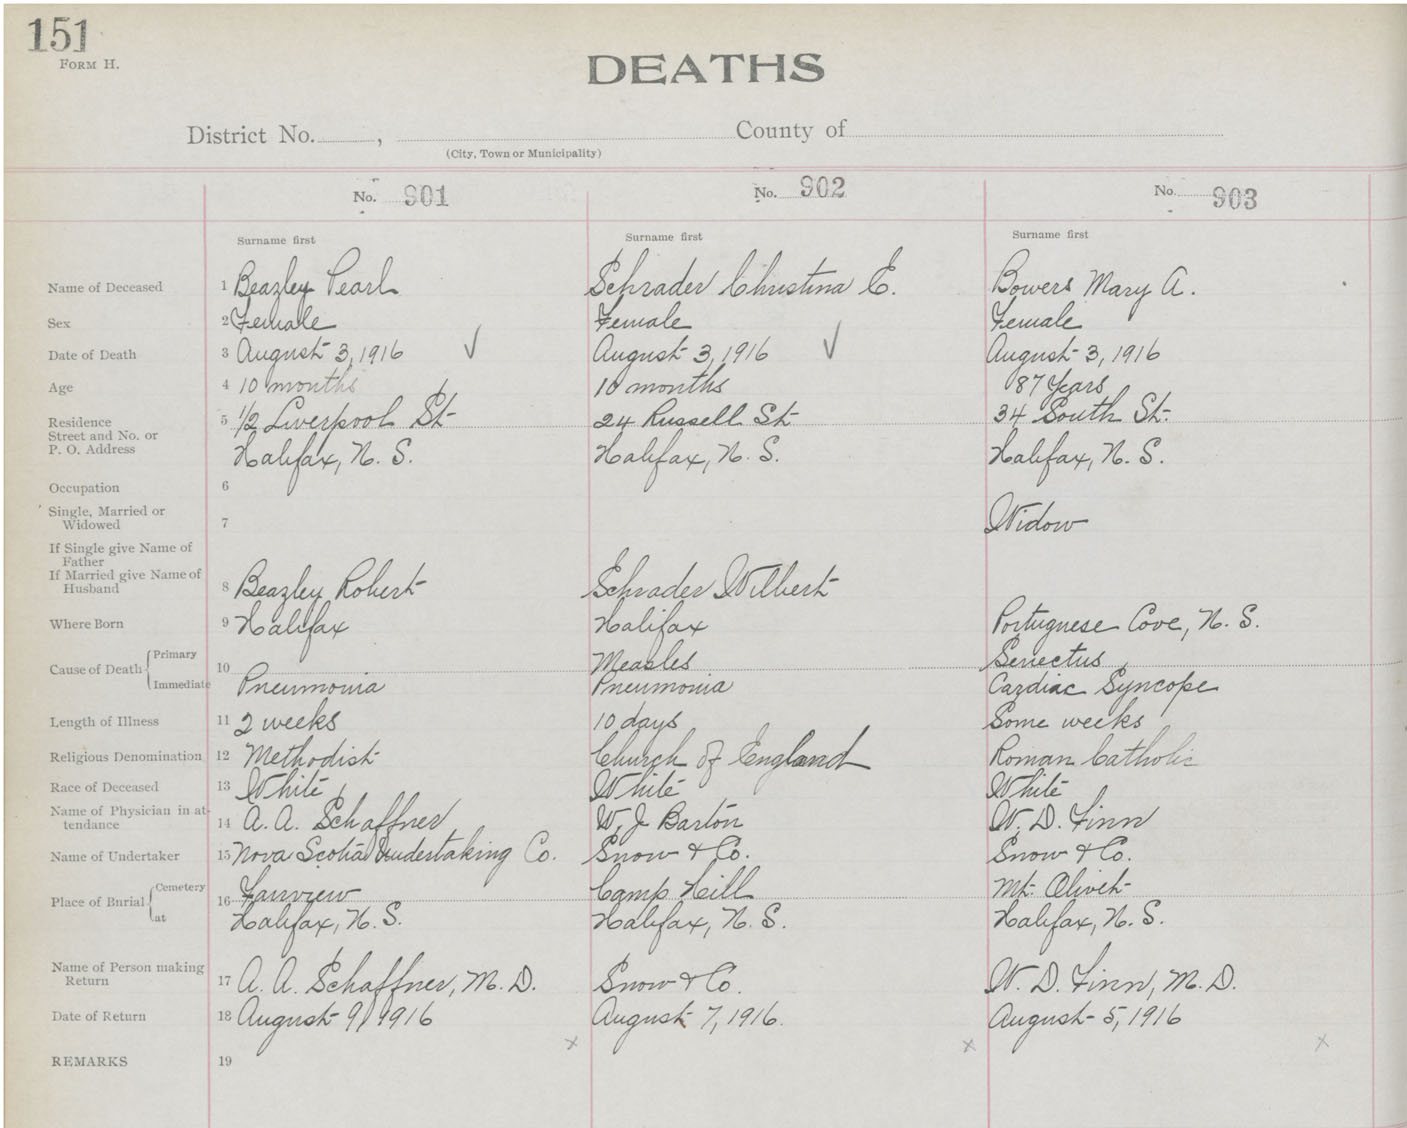 151
FORM H.
DEATHS
District No. , County of
(City, Town or Municipality)
No. 901 No. 902 No. 903
Surname first Surname first Surname first
Name of Deceased 1 Beazley Pearl Schrader Christina E. Bowers Mary A.
Sex 2 Female Female Female
Date of Death 3 August 3, 1916 ✓ August 3, 1916 ✓ August 3, 1916
Age 4 10 months 10 months 87 Years
Residence 5 1/2 Liverpool St 24 Russell St 34 South St.
Street and No. or
P. O. Address Halifax, N. S. Halifax, N. S. Halifax, N. S.
Occupation 6
Single, Married or
Widowed 7 Widow
If Single give Name of
Father
If Married give Name of
Husband 8 Beazley Robert Schrader Wilbert
Where Born 9 Halifax Halifax Portuguese Cove, N. S.
Cause of Death { Primary 10 Measles Senectus
Immediate Pneumonia Pneumonia Cardiac Syncope
Length of Illness 11 2 weeks 10 days Some weeks
Religious Denomination 12 Methodist Church of England Roman Catholic
Race of Deceased 13 White White White
Name of Physician in at-
tendance 14 A. A. Schaffner W. J Barton W. D. Finn
Name of Undertaker 15 Nova Scotia Undertaking Co. Snow & Co. Snow & Co.
Place of Burial { Cemetery 16 Fairview Camp Hill Mt. Olivet
at Halifax, N. S. Halifax, N. S. Halifax, N. S.
Name of Person making
Return 17 A. A. Schaffner, M. D. Snow & Co. W. D. Finn, M. D.
Date of Return 18 August 9, 1916 August 7, 1916. August 5, 1916
x x x
REMARKS 19